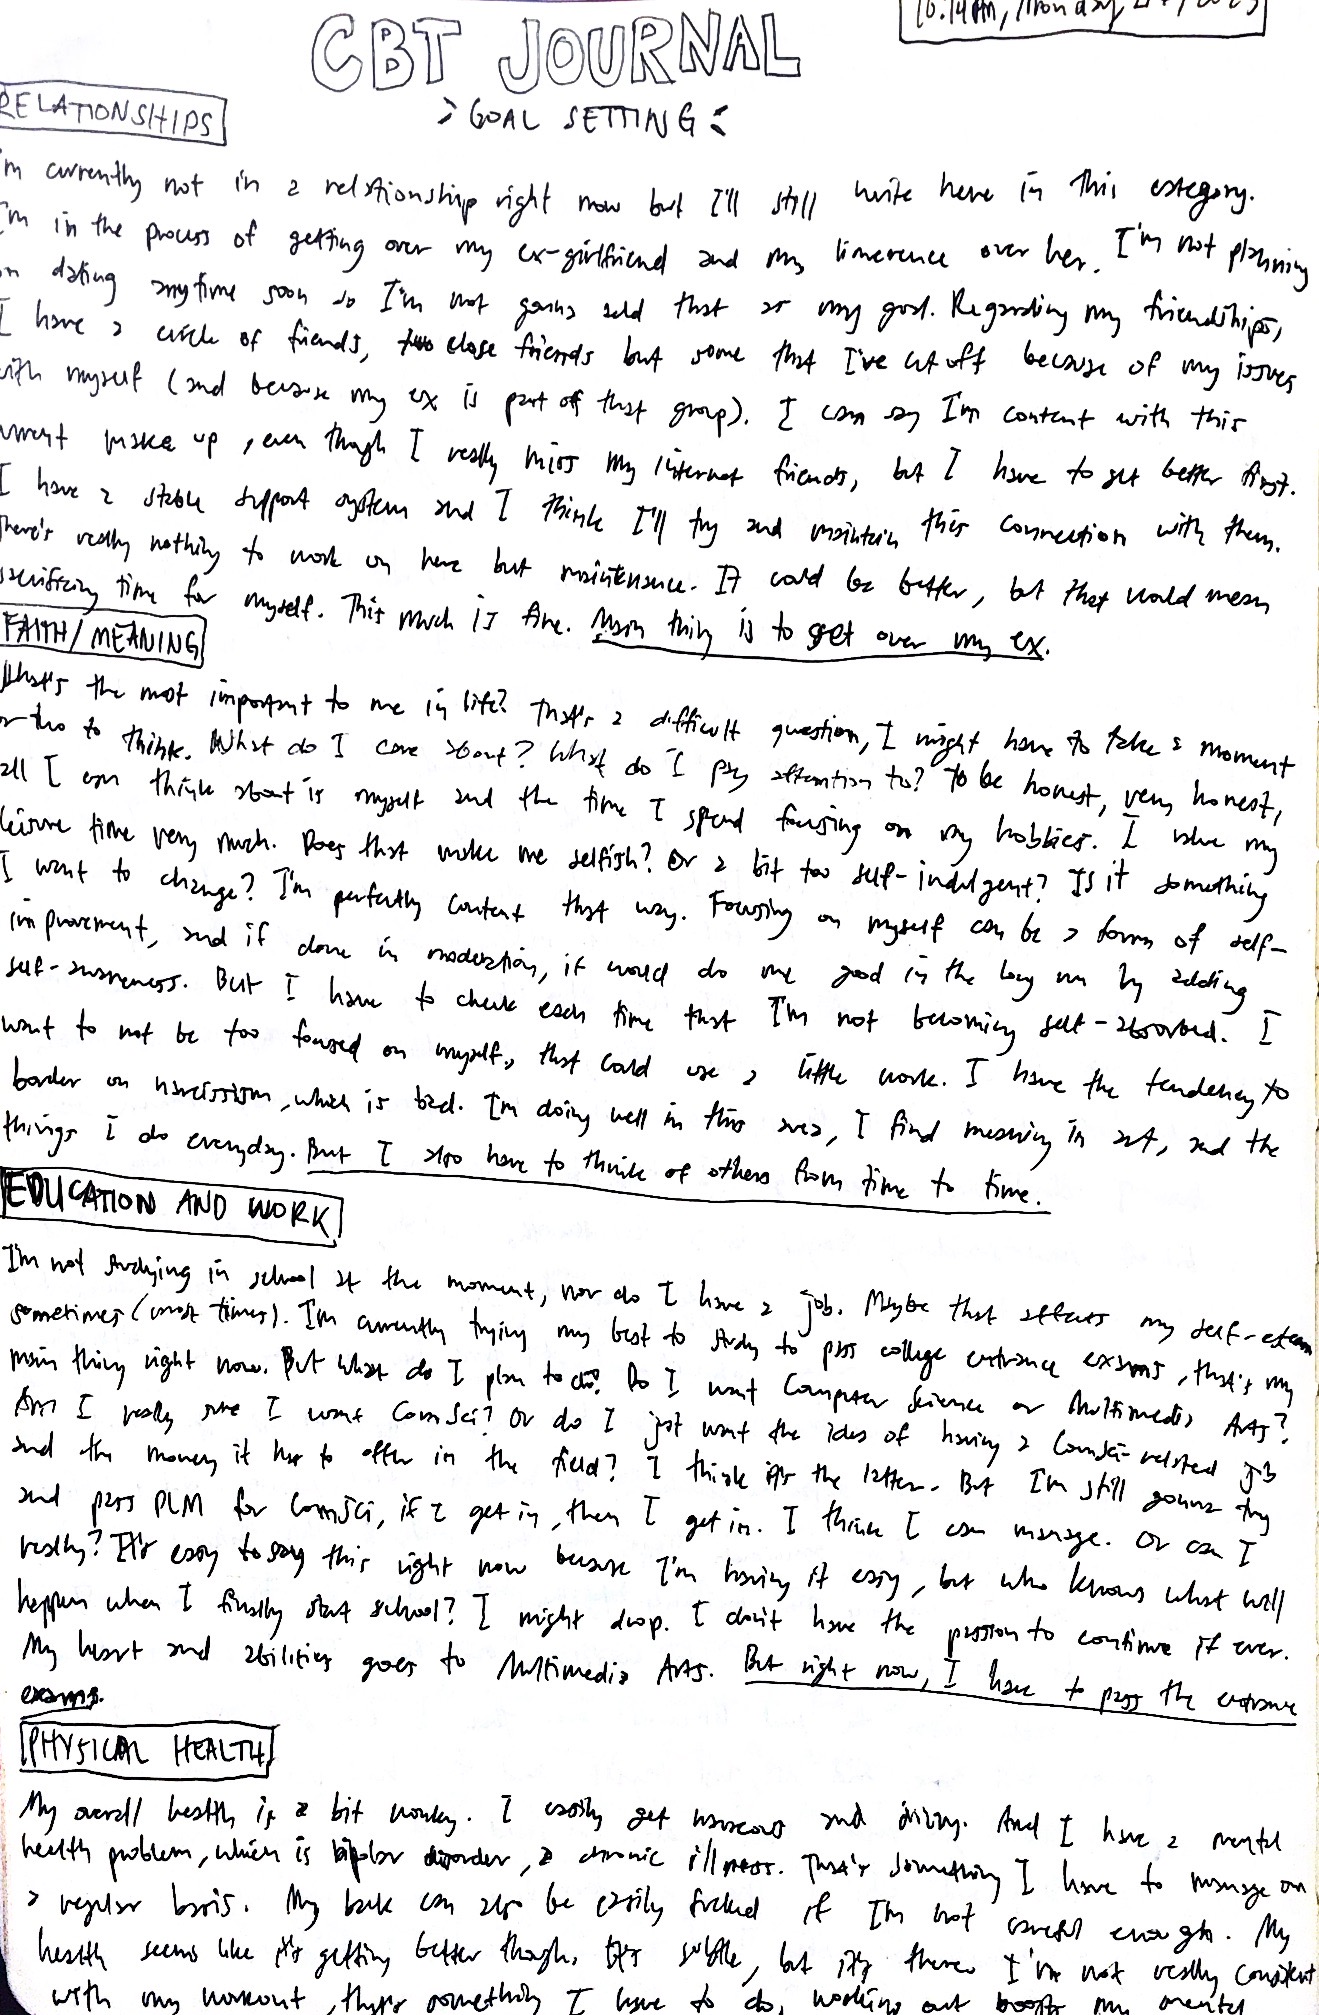 CBT JOURNAL
> GOAL SETTING <
RELATIONSHIPS
I'm currently not in a relationship right now but I'll still write here in this category.
I'm in the process of getting over my ex-girlfriend and my limerence over her. I'm not planning
on dating anytime soon so I'm not gonna add that as my goal. Regarding my friendships,
I have a circle of friends, two close friends but some that I've cut off because of my issues
with myself (and because my ex is part of that group). I can say I'm content with this
current make up, even though I really miss my internet friends, but I have to get better first.
I have a stable support system and I think I'll try and maintain this connection with them.
There's really nothing to work on here but maintenance. It could be better, but that would mean
sacrificing time for myself. This much is fine. Main thing is to get over my ex.
FAITH/MEANING
What's the most important to me in life? That's a difficult question, I might have to take a moment
or two to think. What do I care about? What do I pay attention to? To be honest, very honest,
all I can think about is myself and the time I spend focusing on my hobbies. I value my
leisure time very much. Does that make me selfish? Or a bit too self-indulgent? Is it something
I want to change? I'm perfectly content that way. Focusing on myself can be a form of self-
improvement, and if done in moderation, it would do me good in the long run by adding
self-awareness. But I have to check each time that I'm not becoming self-absorbed. I
want to not be too focused on myself, that could use a little work. I have the tendency to
border on narcissism, which is bad. I'm doing well in this area, I find meaning in art, and the
things I do everyday. But I also have to think of others from time to time.
EDUCATION AND WORK
I'm not studying in school at the moment, nor do I have a job. Maybe that affects my self-esteem
sometimes (most times). I'm currently trying my best to study to pass college entrance exams, that's my
main thing right now. But what do I plan to do? Do I want Computer Science or Multimedia Arts?
Am I really sure I want ComSci? Or do I just want the idea of having a ComSci-related job
and the money it has to offer in the field? I think it's the latter. But I'm still gonna try
and pass PLM for ComSci, if I get in, then I get in. I think I can manage. Or can I
really? It's easy to say this right now because I'm having it easy, but who knows what will
happen when I finally start school? I might drop. I don't have the passion to continue it ever.
My heart and abilities goes to Multimedia Arts. But right now, I have to pass the entrance
exams.
PHYSICAL HEALTH
My overall health is a bit wonky. I easily get nauseous and dizzy. And I have a mental
health problem, which is bipolar disorder, a chronic illness. That's something I have to manage on
a regular basis. My back can also be easily fucked if I'm not careful enough. My
health seems like it's getting better though. It's subtle, but it's there. I'm not really consistent
with my workout, that's something I have to do, working out boosts my mental